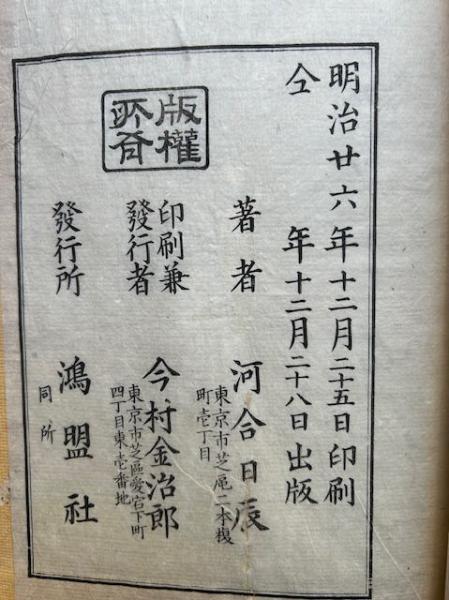 明治廿六年十二月二十五日印刷
仝年十二月二十八日出版
版權所有
著者
河合日辰
東京市芝區二本榎
町壱丁目
印刷兼
發行者
今村金治郎
東京市芝區愛宕下町
四丁目東壱番地
發行所
鴻盟社
同所